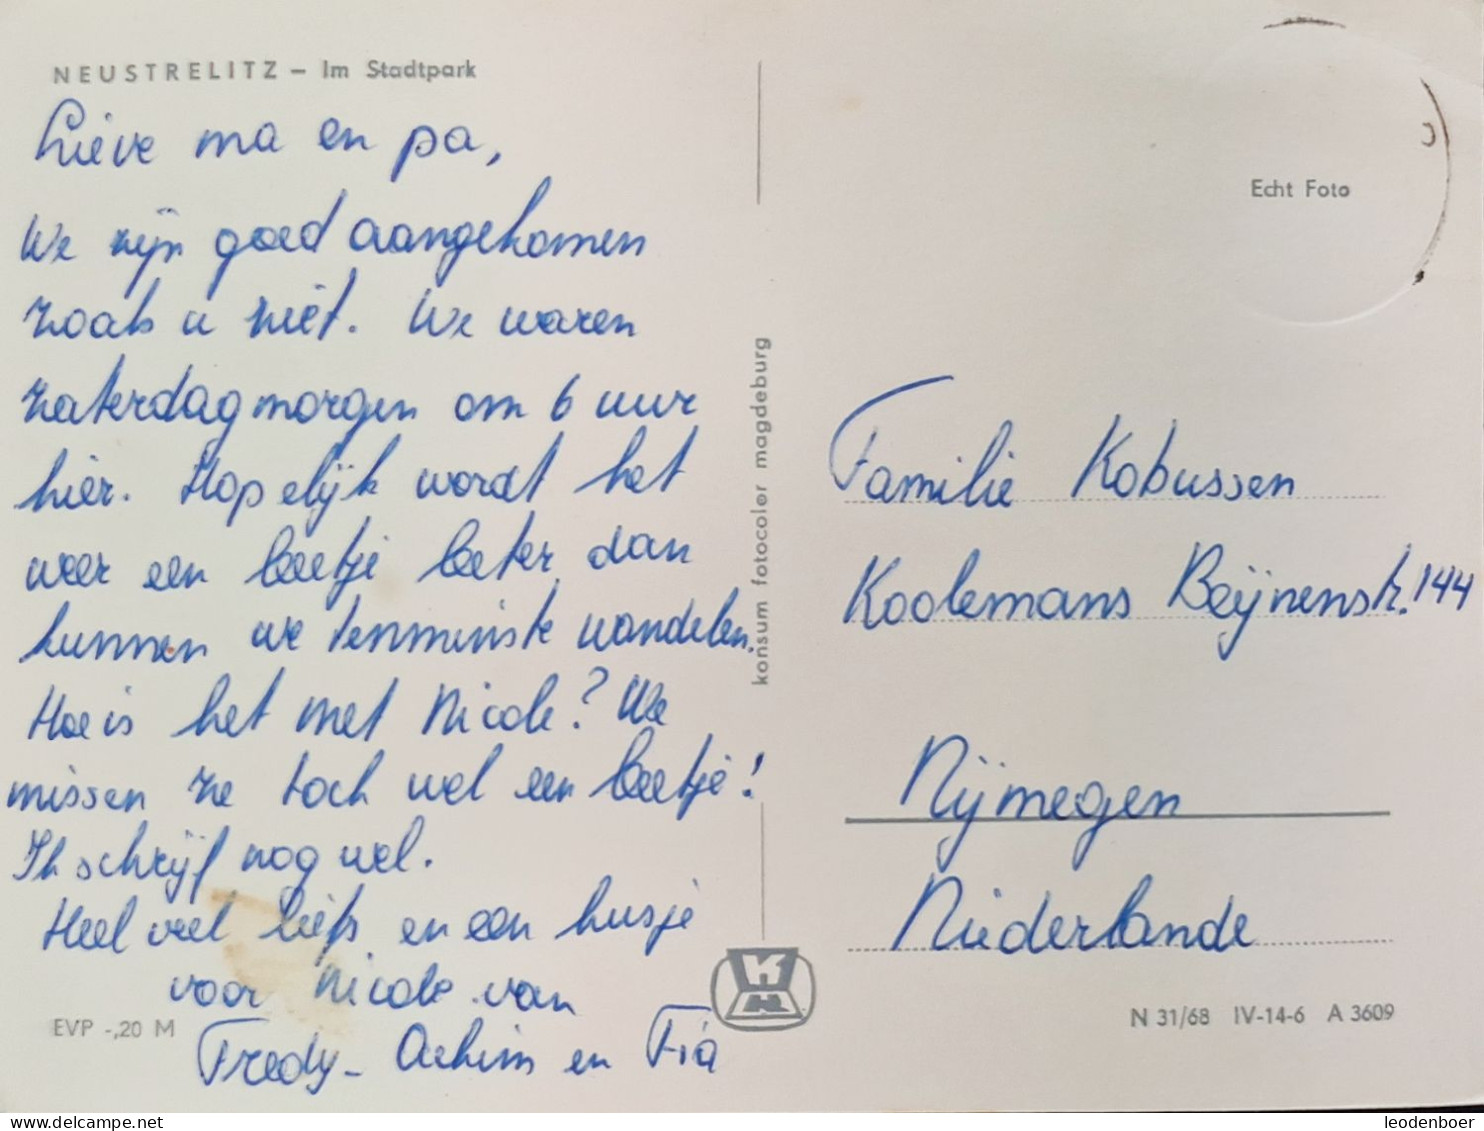 NEUSTRELITZ – Im Stadtpark
Lieve ma en pa,
We zijn goed aangekomen
zoals u ziet. We waren
zaterdagmorgen om 6 uur
hier. Hopelijk wordt het
weer een beetje beter dan
kunnen we tenminste wandelen.
Hoe is het met Nicole? We
missen ze toch wel een beetje!
Ik schrijf nog wel.
Heel veel liefs en een kusje
voor Nicole van
Fredy – Achim en Fia
EVP -,20 M
konsum fotocolor magdeburg
Echt Foto
Familie Kobussen
Koolemans Beijnenstr. 144
Nijmegen
Niederlande
N 31/68 IV-14-6 A 3609
leodenboer